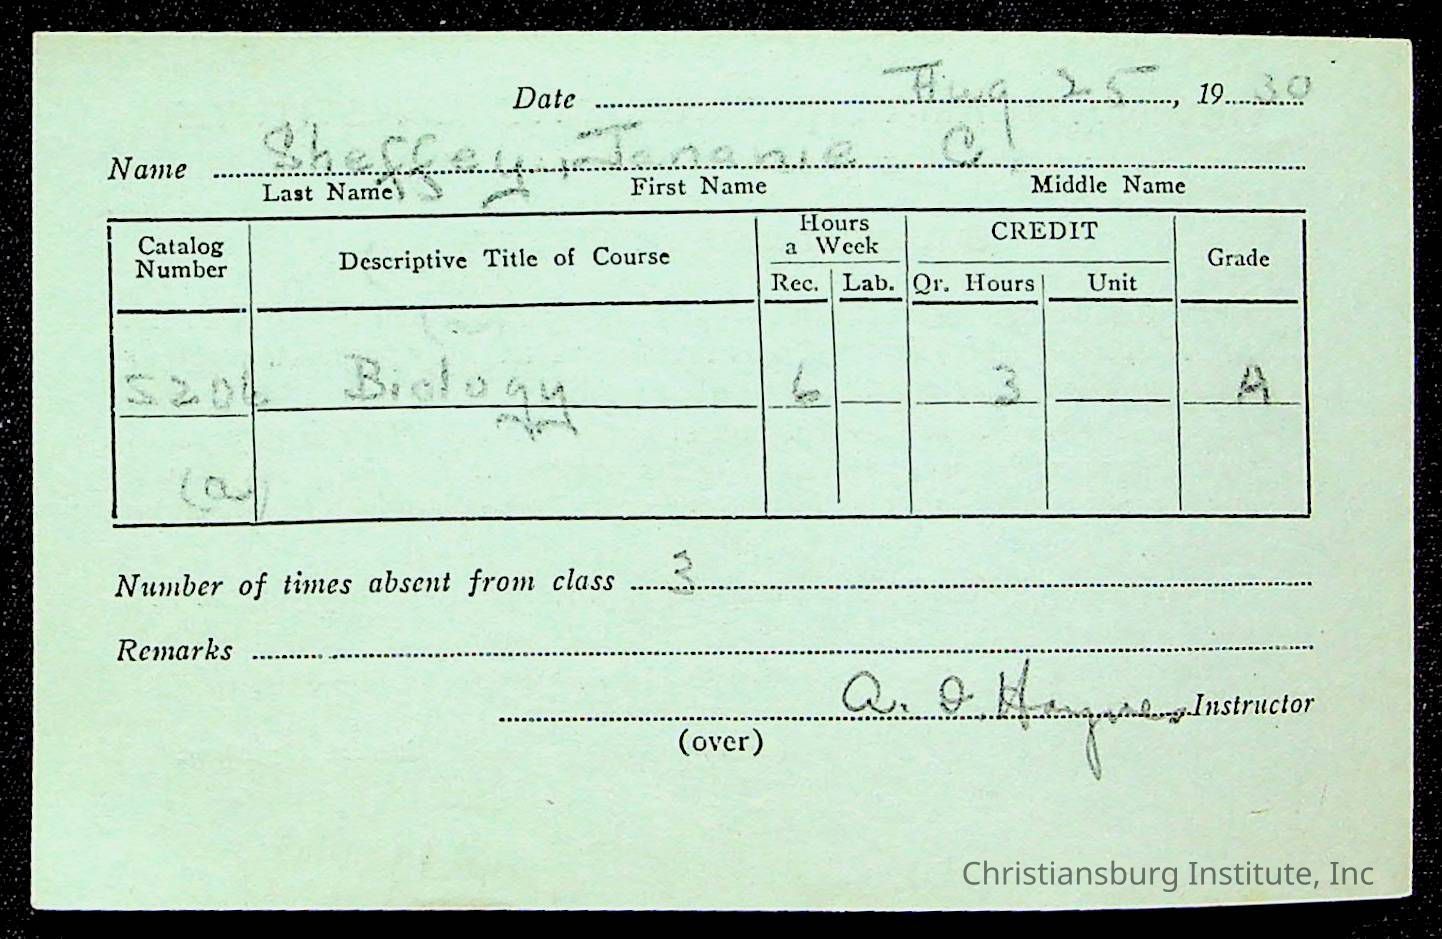 Date Aug 25, 1930
Name Sheffey, Jenanie C.
Last Name First Name Middle Name
Catalog Number Descriptive Title of Course Hours a Week CREDIT Grade
Rec. Lab. Qr. Hours Unit
S206 Biology 6 3 A
(a)
Number of times absent from class 3
Remarks
A. D. Haynes Instructor
(over)
Christiansburg Institute, Inc